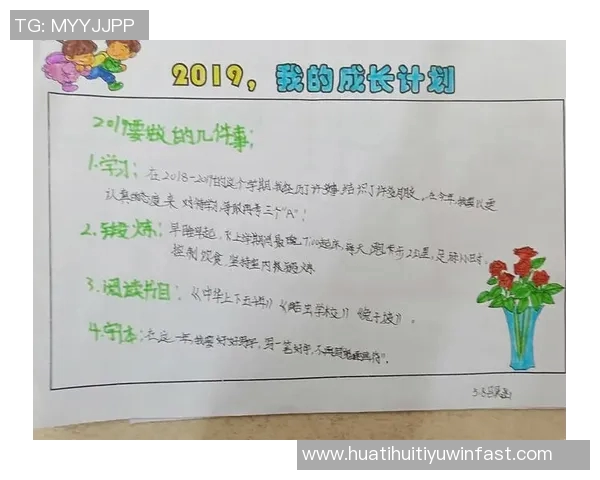 TG: MYYJJPP
2019，我的成长计划
2019要做的几件事：
1.学习：在2018-2019的这个学期我经历了许多事,结识了许多朋友，在今年,我要以更
认真的态度来对待学习,争取再考三个"A"！
2.锻炼：早睡早起，不上学期间最晚7:00起床,每天跑步2公里,足球1小时，
控制饮食，坚持室内锻炼
3.阅读书目：《中华上下五千年》《昆虫学校》《兔子坡》。
4.字体：在这一年,我要好好写字，写一笔好字，不再
3.3
www.huatihuitiyuwinfast.com